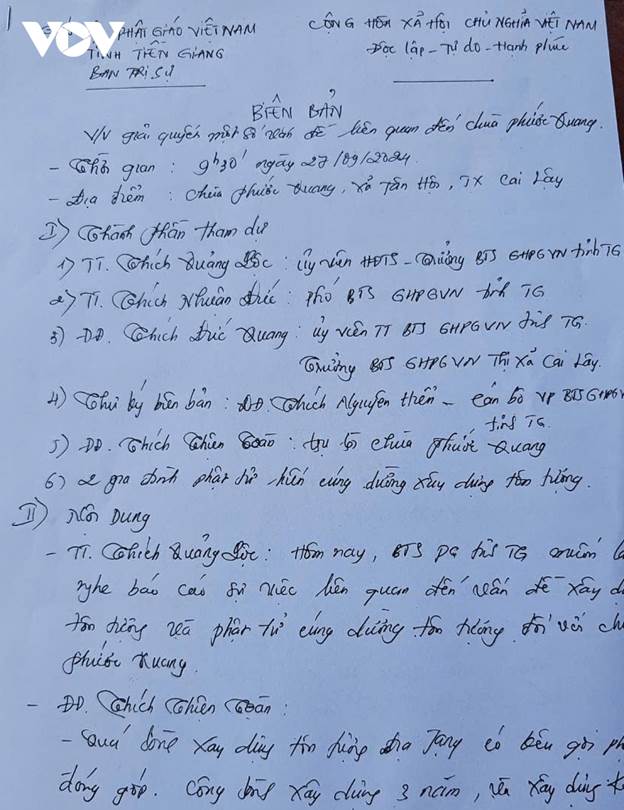 VOV
PHẬT GIÁO VIỆT NAM
TỈNH TIỀN GIANG
BAN TRỊ SỰ
CỘNG HÒA XÃ HỘI CHỦ NGHĨA VIỆT NAM
Độc lập - Tự do - Hạnh phúc
BIÊN BẢN
V/v giải quyết một số vấn đề liên quan đến chùa Phước Quang.
- Thời gian : 9h30' ngày 27/09/2024.
- Địa điểm : Chùa Phước Quang, xã Tân Hội, TX Cai Lậy
I) Thành phần tham dự
1) TT. Thích Quảng Lộc : Ủy viên HĐTS - Trưởng BTS GHPGVN tỉnh TG
2) TT. Thích Nhuận Đức : Phó BTS GHPGVN tỉnh TG
3) ĐĐ. Thích Đức Quang : Ủy viên TT BTS GHPGVN tỉnh TG.
Trưởng BTS GHPGVN Thị xã Cai Lậy.
4) Thư ký biên bản : ĐĐ. Thích Nguyên - Cán bộ VP BTS GHPGV
tỉnh TG.
5) ĐĐ. Thích Thiên : trụ trì chùa Phước Quang
6) 2 gia đình phật tử hiến cúng dường xây dựng tôn tượng.
II) Nội Dung
- TT. Thích Quảng Lộc : Hôm nay, BTS PG tỉnh TG muốn
nghe báo cáo sự việc liên quan đến vấn đề xây d
tôn tượng và phật tử cúng dường tôn tượng đối với ch
Phước Quang.
- ĐĐ. Thích Thiên :
- Quá trình xây dựng tôn tượng Địa Tạng có kêu gọi ph
đóng góp. Công trình xây dựng 3 năm, và xây dựng